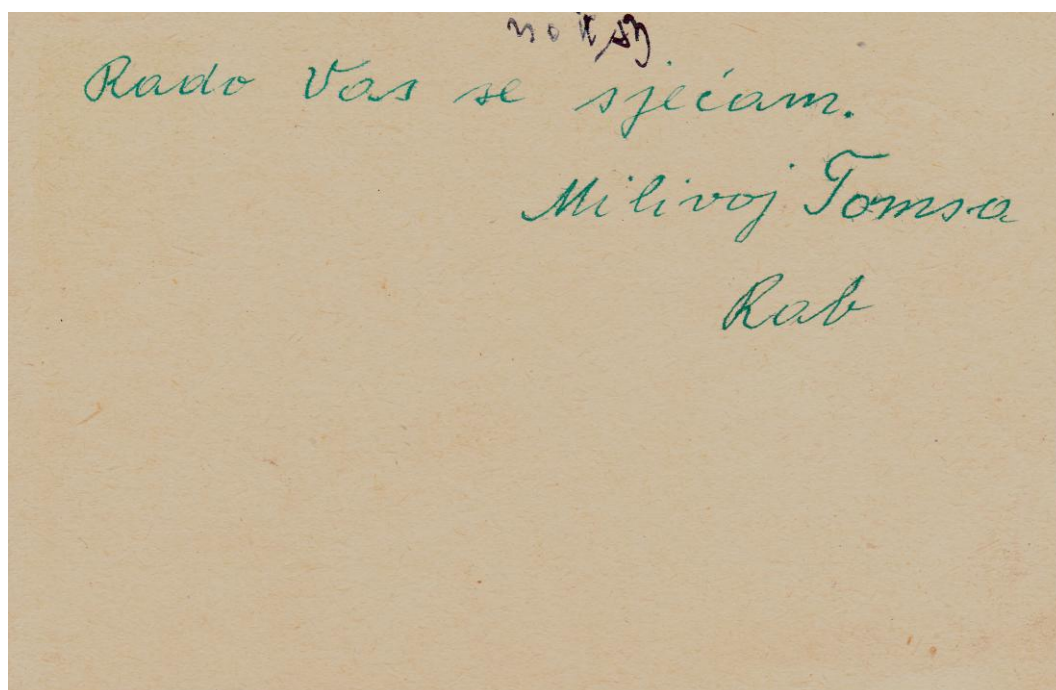 Rado Vas se sjećam.
Milivoj Tomsa
Rab